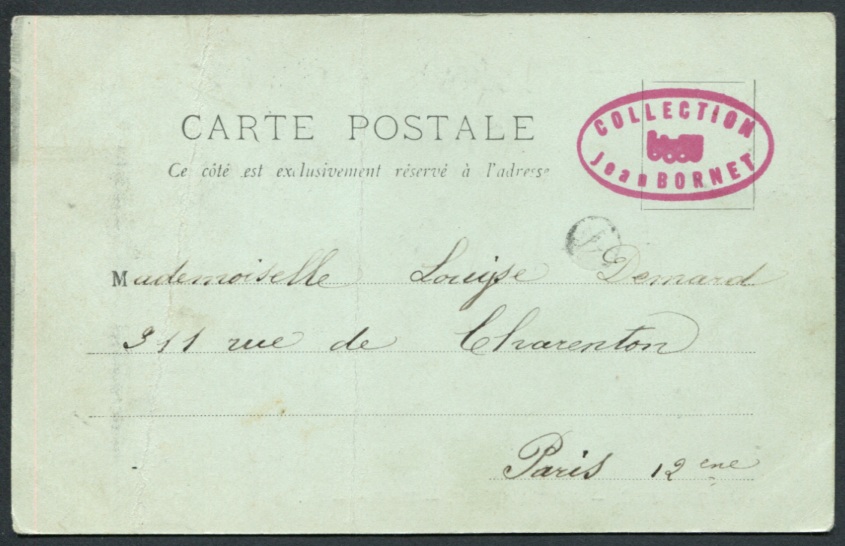 CARTE POSTALE
Ce côté est exclusivement réservé à l'adresse
COLLECTION
Jean BORNET
Mademoiselle Louise Demard
311 rue de Charenton
Paris 12 eme